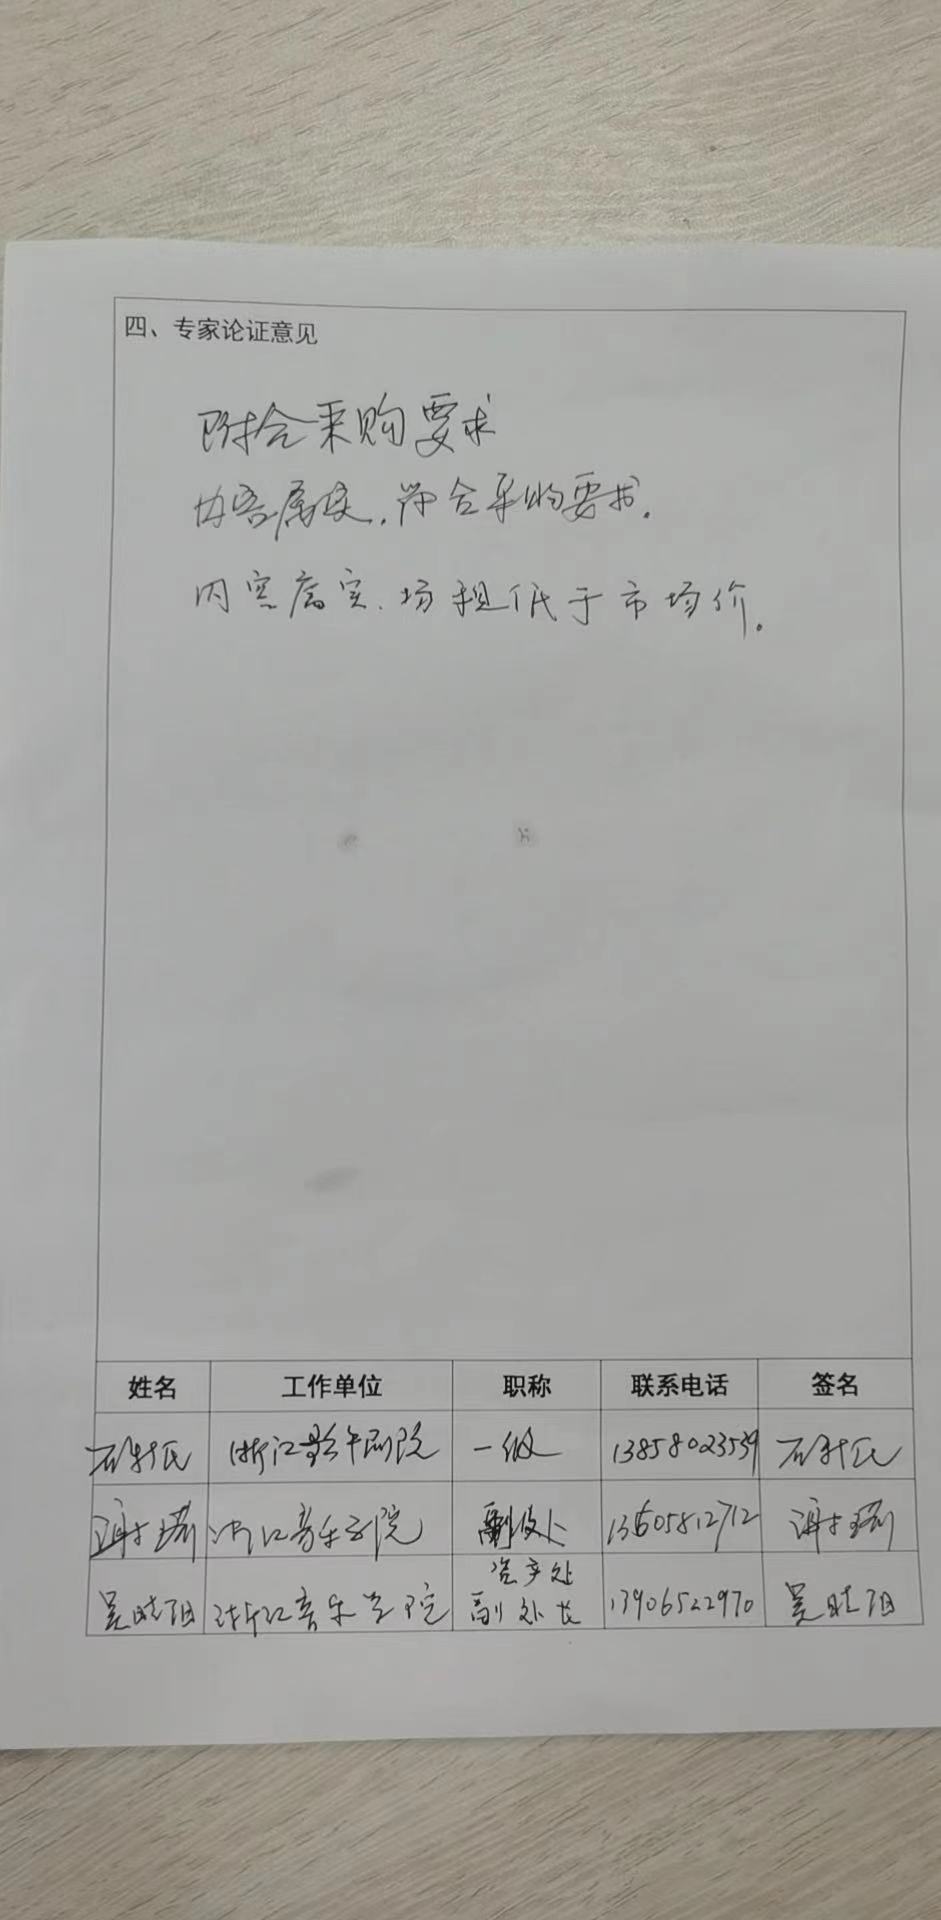 四、专家论证意见
附合采购要求
内容属实,符合采购要求.
内容属实.场租低于市场价.
姓名 工作单位 职称 联系电话 签名
浙江 一级 13858023539
浙江音乐学院 副 13605812712
资产处
吴 浙江音乐学院 副处长 13906522970 吴